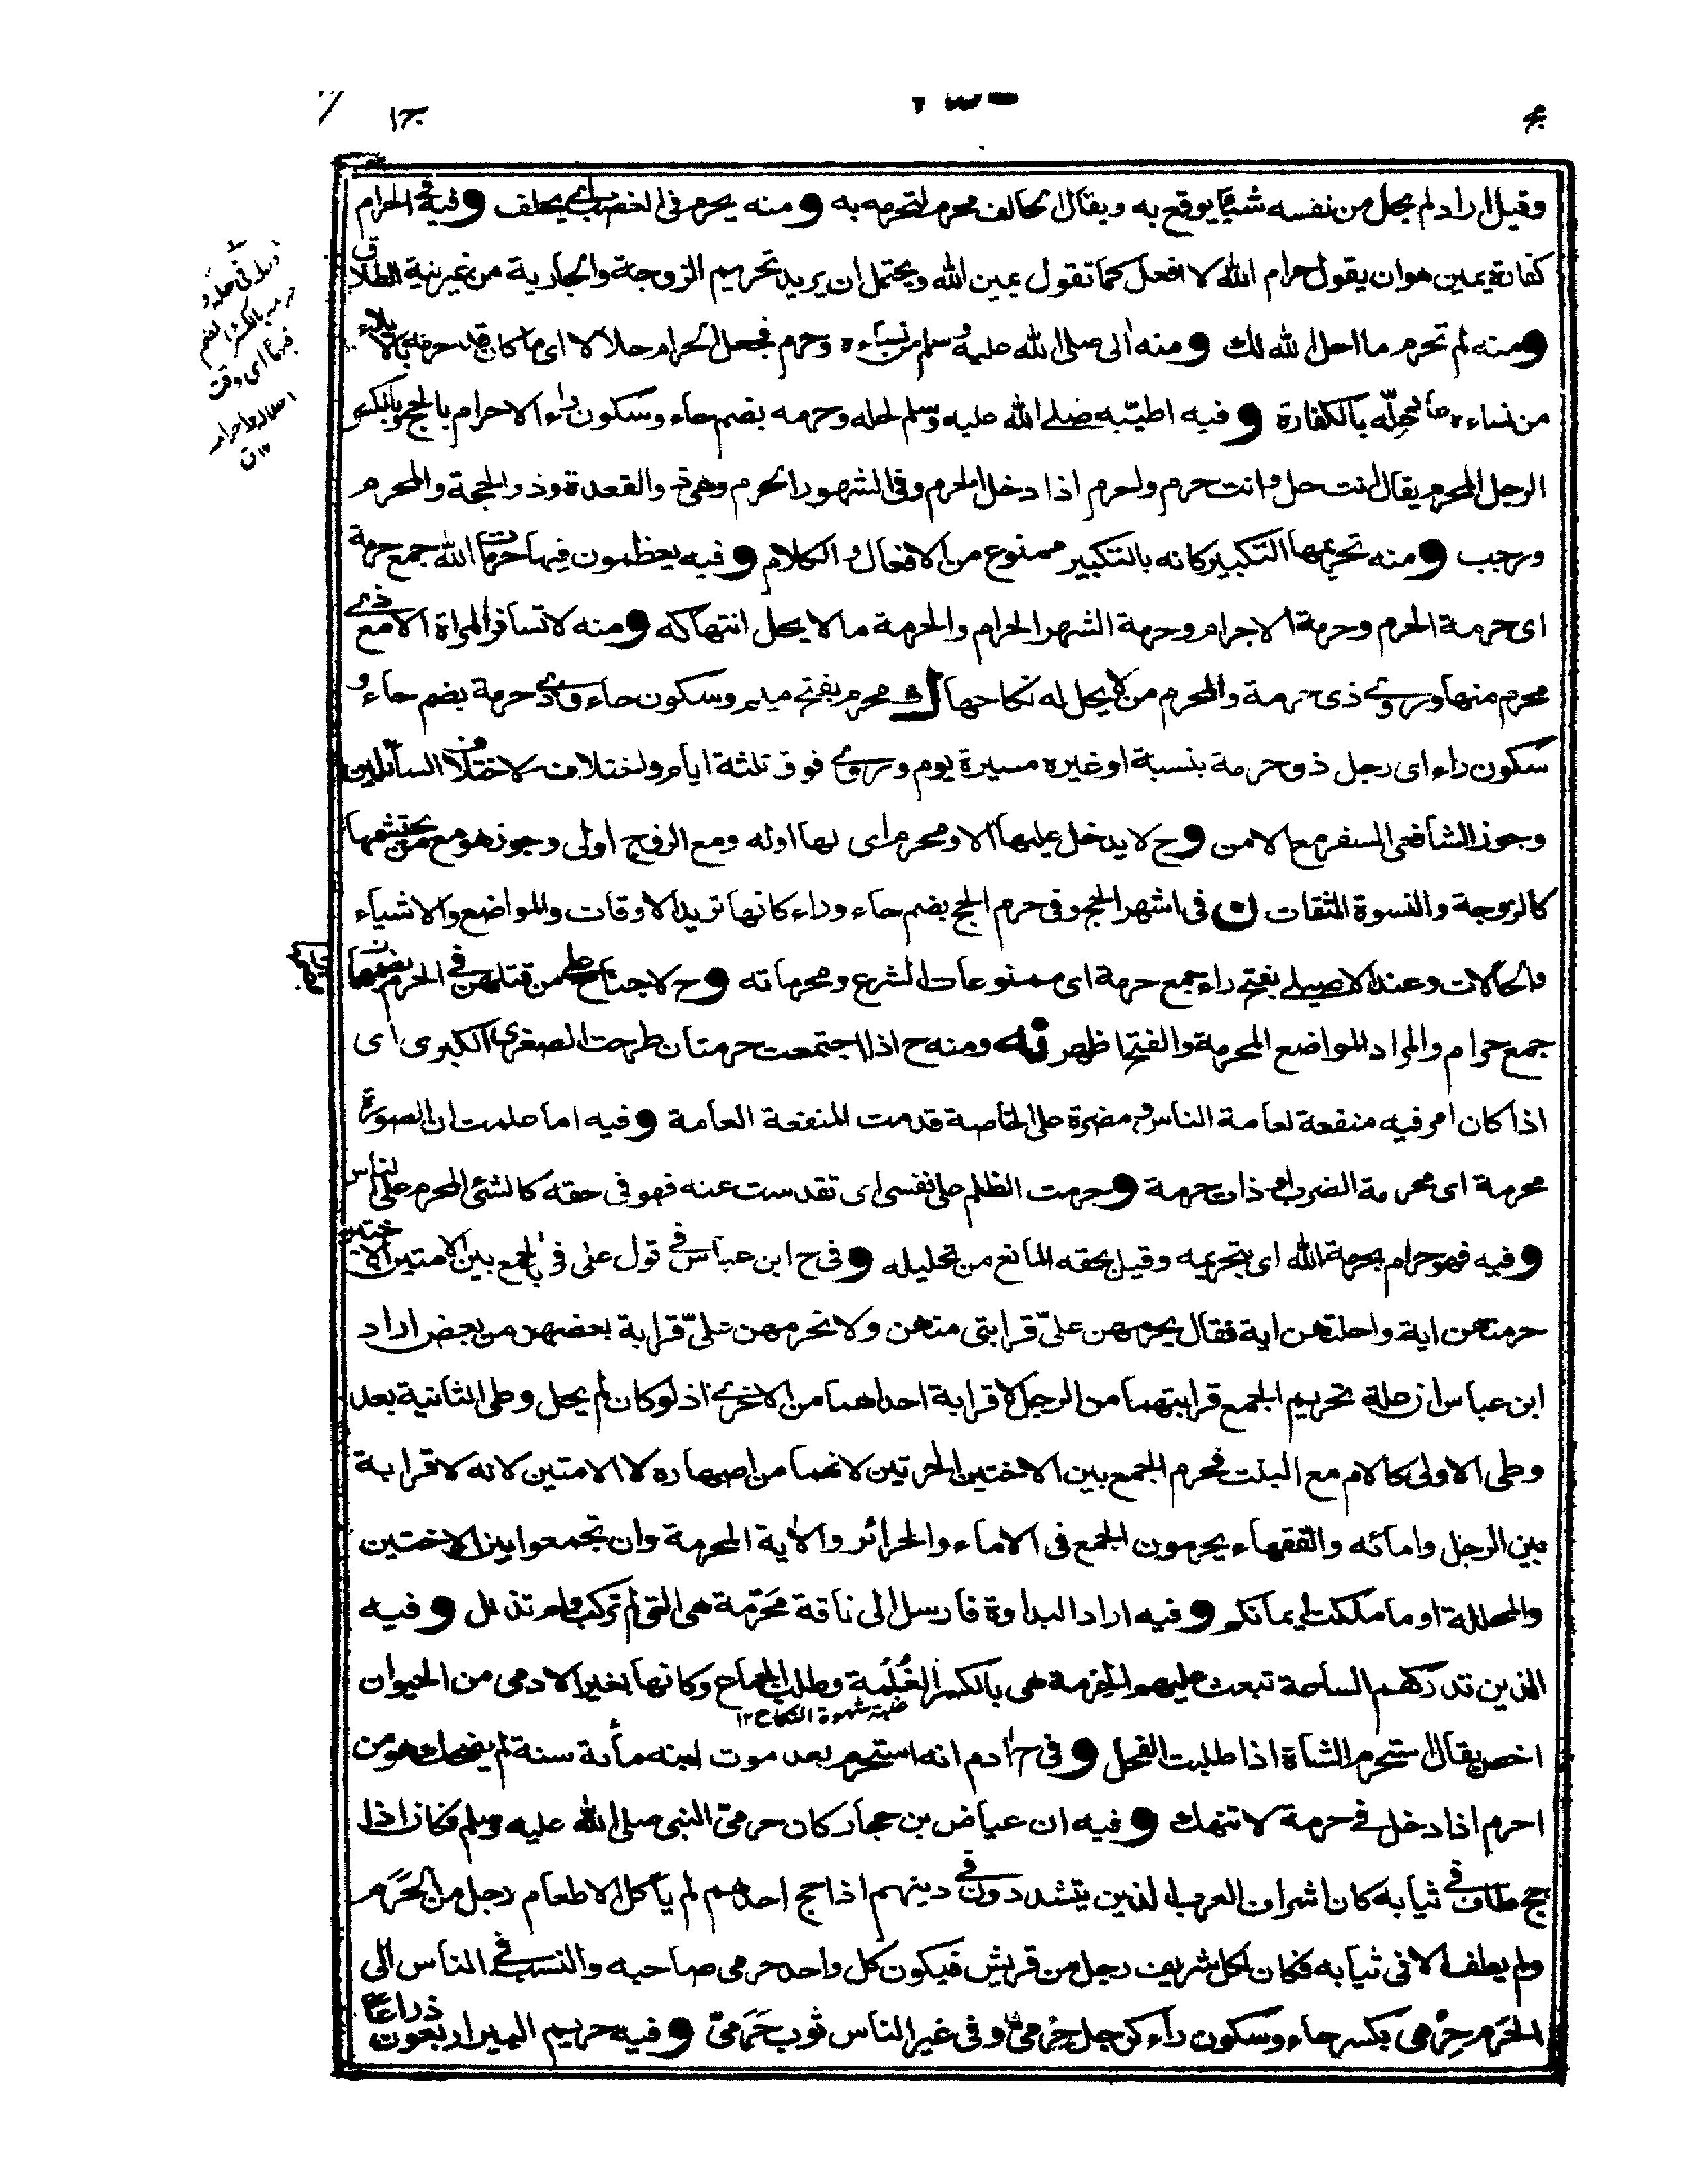 وقيل اراد لم يحل من نفسه شيئا يوقع به ويقال الحالف محرم لتحرمه به و منه يحرم فى الغضب اى يحلف و فيه فى الحرام
كفارة يمين هو ان يقول حرام الله لا افعل كما تقول يمين الله ويحتمل ان يريد تحريم الزوجة والجارية من غير نية الطلاق
و منه لم تحرم ما احل الله لك و منه الى صلى الله عليه وسلم من نساءه وحرم فجعل الحرام حلالا اى ما كان قد حرمه بالايلاء
من نساءه عاد احلّه بالكفارة و فيه اطيّبه صلى الله عليه وسلم لحله وحرمه بضم حاء وسكون راء الاحرام بالحج وبالكسر
الرجل المحرم يقال انت حل وانت حرم واحرم اذا دخل الحرم وفى الشهور الحرم وهى ذو القعدة وذو الحجة والمحرم
ورجب و منه تحريمها التكبير كانه بالتكبير ممنوع من الافعال والكلام و فيه يعظمون فيها حرمات الله جمع حرمة
اى حرمة الحرم وحرمة الاحرام وحرمة الشهر الحرام والحرمة مالا يحل انتهاكه و منه لا تسافر المراة الا مع ذى
محرم منها وروى ذى حرمة والمحرم من لا يحل له نكاحها ك محرم بفتح ميم وسكون حاء وذى حرمة بضم حاء و
سكون راء اى رجل ذو حرمة بنسبة او غيره مسيرة يوم وروى فوق ثلثة ايام واختلاف لاختلاف السائلين
وجوز الشافعى السفر مع الامن و ح لا يدخل عليها الا ومحرم اى لها اوله ومع الزوج اولى وجوز هو مع من يحتشمها
كالزوجة والنسوة الثقات ن فى اشهر الحج وفى حرم الحج بضم حاء وراء كانها تريد الاوقات والمواضع والاشياء
والحالات وعند الاصيلى بفتح راء جمع حرمة اى ممنوعات الشرع ومحرماته و ح لا جناح على من قتلهن فى الحرم بضمهما
جمع حرام والمراد المواضع المحرمة والفتح اظهر نه ومنه ح اذا اجتمعت حرمتان طرحت الصغرى الكبرى اى
اذا كان امر فيه منفعة لعامة الناس ومضرة على الخاصة قدمت المنفعة العامة و فيه اما علمت ان الصورة
محرمة اى محرمة الضرب او ذات حرمة و حرمت الظلم على نفسى اى تقدست عنه فهو فى حقه كالشئ المحرم على الناس
و فيه فهو حرام بحرمة الله اى بتحريمه وقيل بحقه المانع من تحليله و فى ح ابن عباس فى قول على فى الجمع بين الامتين الاختين
حرمتهن اية واحلتهن اية فقال يحرمهن علىّ قرابتى منهن ولا تحرمهن علىّ قرابة بعضهن من بعض اراد
ابن عباس ان علة تحريم الجمع قرابتهما من الرجل لا قرابة احداهما من الاخرى اذ لو كان لم يحل وطى الثانية بعد
وطى الاولى كالام مع البنت فحرم الجمع بين الاختين الحرتين لانهما من اصهاره لا الامتين لانه لا قرابة
بين الرجل وامائه والفقهاء يحرمون الجمع فى الاماء والحرائر والاية المحرمة وان تجمعوا بين الاختين
والمحللة او ما ملكت ايمانكم و فيه اراد البداوة فارسل الى ناقة محَرَّمة هى التى لم تركب ولم تذلل و فيه
الذين تدركهم الساعة تبعث عليهم الحِرمة هى بالكسر الغُلْمة وطلب الجماع وكانها بغير الادمى من الحيوان
غلبة شهوة النكاح ١٢
اخص يقال استحرم الشاة اذا طلبت الفحل و فى ح ادم انه استحرم بعد موت ابنه مأية سنة لم يضحك هو من
احرم اذا دخل فى حرمة لا تنهك و فيه ان عياض بن حمار كان حرمىّ النبى صلى الله عليه وسلم فكان اذا
حج طاف فى ثيابه كان اشراف العرب الذين يتشددون فى دينهم اذا حج احدهم لم يأكل الا طعام رجل من الحَرَم
ولم يطف الا فى ثيابه فكان لكل شريف رجل من قريش فيكون كل واحد حرمى صاحبه والنسب فى الناس الى
الحَرَم حِرْمى بكسر حاء وسكون راء كرجل حِرْمىّ وفى غير الناس ثوب حَرَمىّ و فيه حريم البير اربعون ذراعا